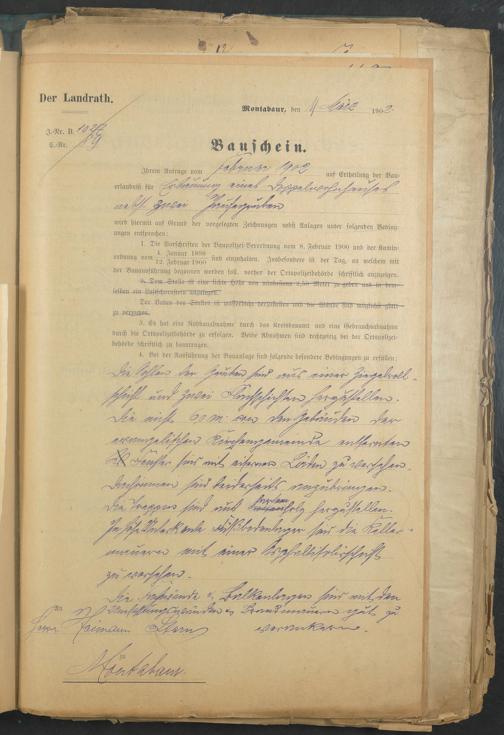 Der Landrath.
J.-Nr. B.
C.-Nr.
Montabaur, den März 1902
Bauschein.
Ihrem Antrage vom Februar 1902 auf Ertheilung der Bau-
erlaubniß für Erbauung eines Doppelwohnhauses
nebst zwei
wird hiermit auf Grund der vorgelegten Zeichnungen nebst Anlagen unter folgenden Beding-
ungen entsprochen:
1. Die Vorschriften der Baupolizei-Verordnung vom 8. Februar 1900 und der Kamin-
ordnung vom 4. Januar 1898 / 12. Februar 1900 sind einzuhalten. Insbesondere ist der Tag, an welchem mit
der Bauausführung begonnen werden soll, vorher der Ortspolizeibehörde schriftlich anzuzeigen.
2. Dem Stalle ist eine lichte Höhe von mindestens 2,50 Meter zu geben und in dem-
selben ein anzulegen.
Der Boden des Stalles ist wasserdicht herzustellen und die Wände sind möglichst glatt
zu verputzen.
3. Es hat eine Rohbauabnahme durch das Kreisbauamt und eine Gebrauchsabnahme
durch die Ortspolizeibehörde zu erfolgen. Beide Abnahmen sind rechtzeitig bei der Ortspolizei-
behörde schriftlich zu beantragen.
4. Bei der Ausführung der Bauanlage sind folgende besondere Bedingungen zu erfüllen:
Die der Gruben sind aus einer Ziegelroll-
schicht und zwei Flachschichten herzustellen.
Die nicht von den Gebäuden der
evangelischen Kirchengemeinde entfernten
Fenster sind mit eisernen Läden zu versehen.
sind beiderseits anzubringen.
Die Treppen sind aus hartem Holz herzustellen.
sind die Keller-
mauern mit einer Asphaltisolirschicht
zu versehen.
Die Balkenlagen sind mit den
Umfassungswänden gut zu
verankern.
An
Herrn Stern
Montabaur.